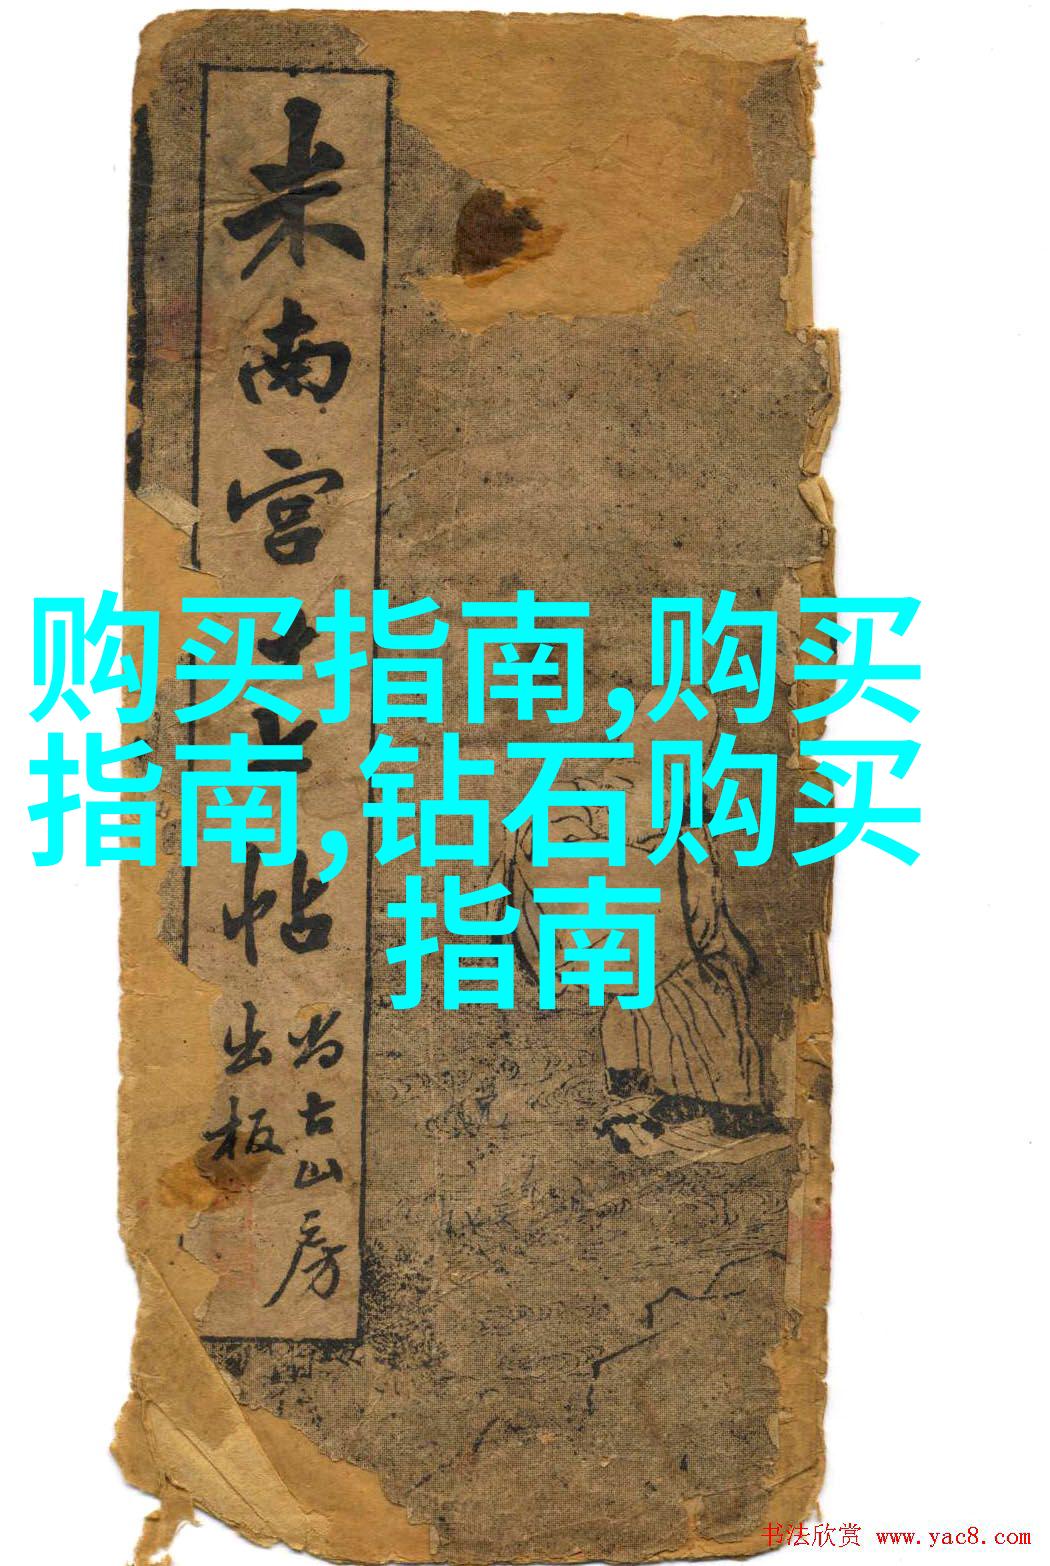 米南宫
帖
尚古山房
出板
购买指南,购买
指南,钻石购买
指南
书法欣赏 www.yac8.com